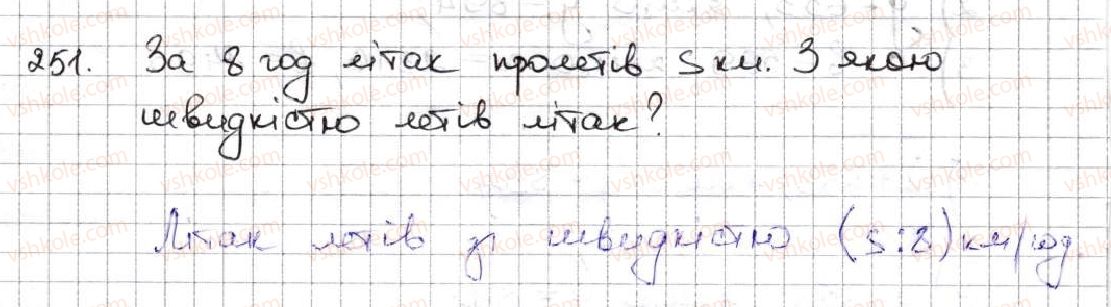 251. За 8 год літак пролетів s км. З якою
швидкістю летів літак?
Літак летів зі швидкістю (s:8) км/год.